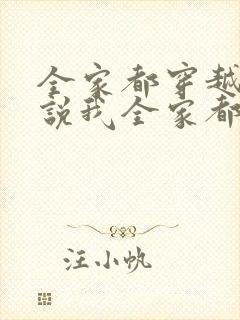 全家都穿越
說我全家都
汪小帆